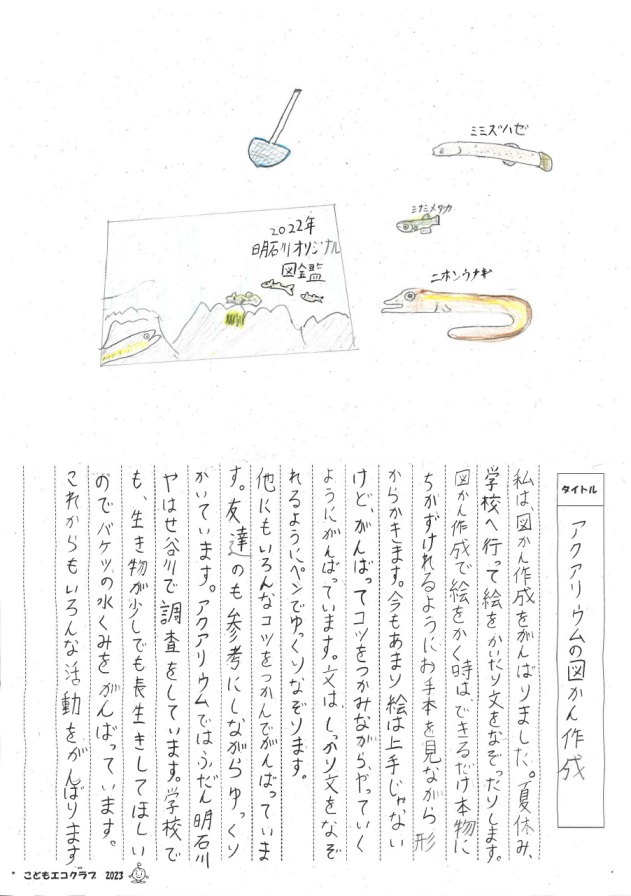 ミミズハゼ
ミナミメダカ
ニホンウナギ
2022年
明石川オリジナル
図鑑
タイトル
アクアリウムの図かん作成
私は、図かん作成をがんばりました。夏休み、
学校へ行って絵をかいたり文をなぞったりします。
図かん作成で絵をかく時はできるだけ本物に
ちかずけれるようにお手本を見ながら形
からかきます。今もあまり絵は上手じゃない
けど、がんばってコツをつかみながら、やっていく
ようにがんばっています。文は、しっかり文をなぞ
れるようにペンでゆっくりなぞります。
他にもいろんなコツをつかんでがんばっていま
す。友達のも参考にしながらゆっくり
かいています。アクアリウムではふだん明石川
やはせ谷川で調査をしています。学校で
も、生き物が少しでも長生きしてほしい
のでバケツの水くみをがんばっています。
これからもいろんな活動をがんばります。
こどもエコクラブ 2023